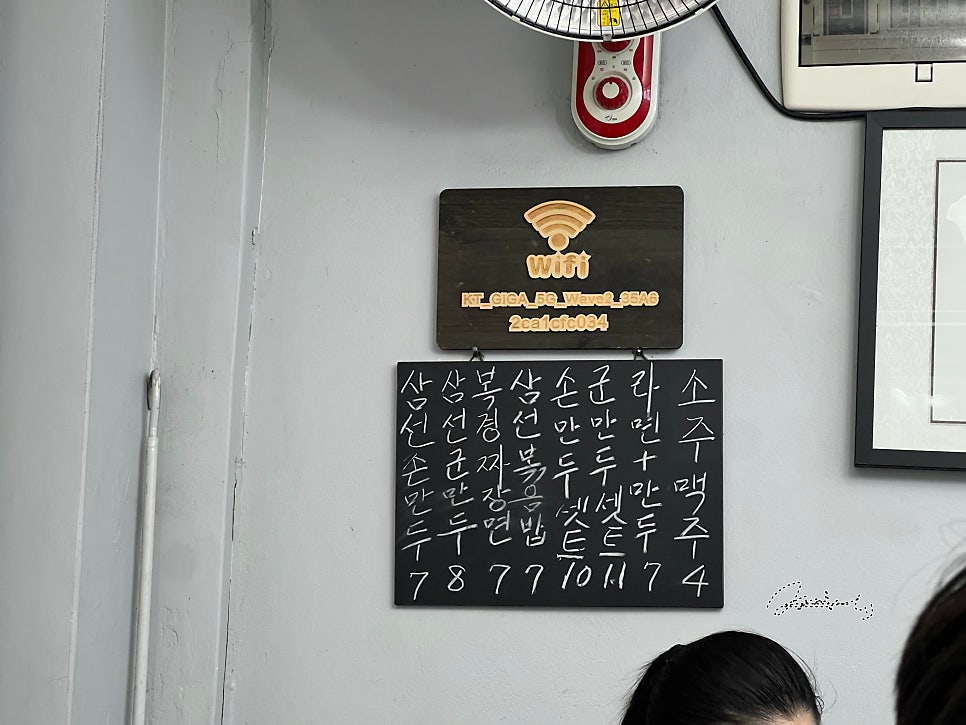 Wifi
KT_GIGA_5G_Wave2_35A6
2ca1cfc034
삼선손만두 7
삼선군만두 8
북경짜장면 7
삼선볶음밥 7
손만두셋트 10
군만두셋트 11
라면+만두 7
소주맥주 4